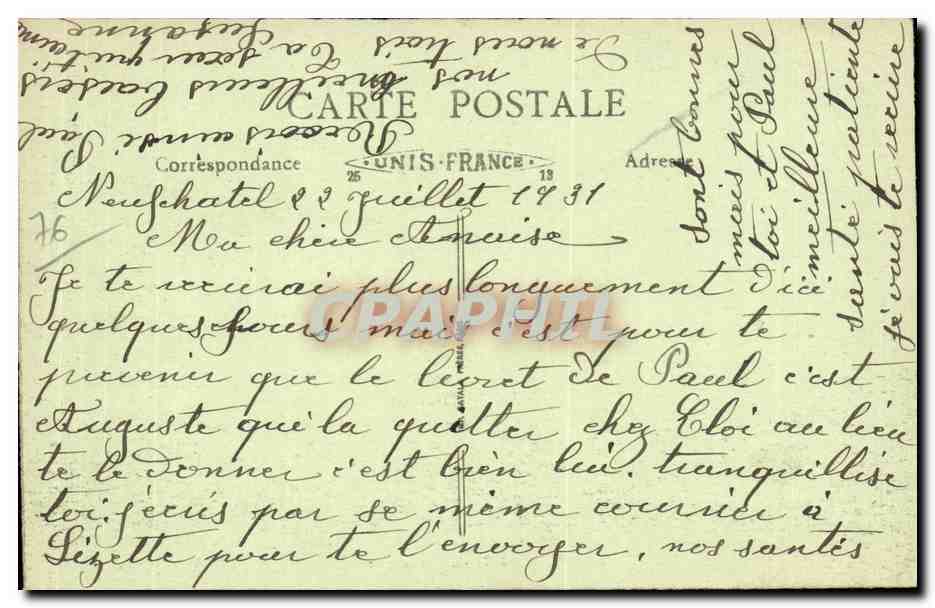 CARTE POSTALE
Correspondance
UNIS-FRANCE
25
13
Adresse
76
Neufchatel 22 Juillet 1931
Ma chère Anaise
Je te recrirai plus longuement d'ici
quelques jours mais c'est pour te
prevenir que le livret de Paul c'est
Auguste qui la quetter chez Eloi au lieu
te le donner c'est bien lui. tranquillise
toi. j'ecris par se même courrier à
Lizette pour te l'envoyer, nos santés
sont bonnes
mais pour
toi et Paul
meilleure
santé
je vais te recrire
Recois ainsi Paul
nos meilleurs baisers
de nous trois Ta sœur qui t'aime
Suzanne
CPAPHIL